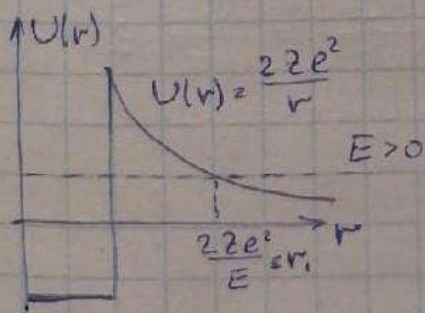 U(r)
U(r) = 2Ze²/r
E > 0
r
2Ze²/E = r₁